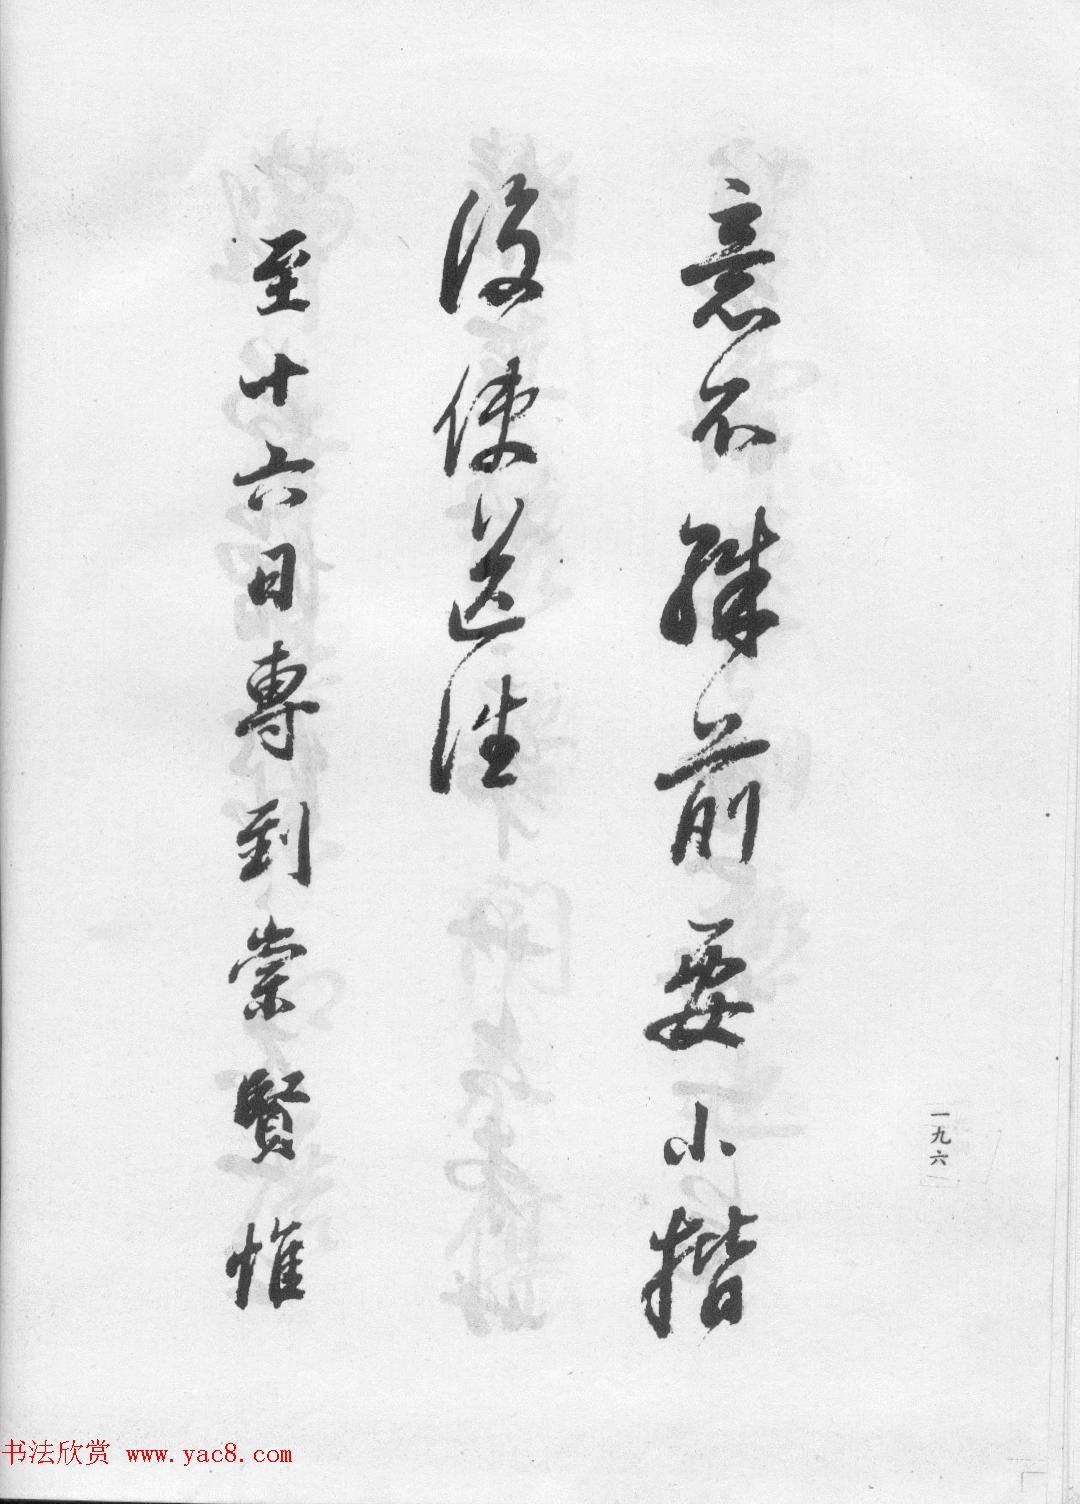 意不殊前要小楷
後使送往
至十六日專到崇賢惟
一九六
书法欣赏 www.yac8.com